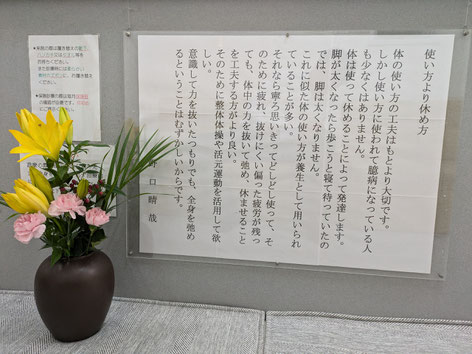 使い方より休め方
体の使い方の工夫はもとより大切です。
しかし使い方に使われて臆病になっている人
も少なくはありません。
体は使って休めることによって発達します。
脚が太くなったら歩こうと寝て待っていたの
では、脚は太くなりません。
これに似た体の使い方が養生として用いられ
ていることが多い。
それなら寧ろ思いきってどしどし使って、そ
のために疲れ、抜けにくい偏った疲労が残っ
ても、体中の力を抜いて弛め、休ませること
を工夫する方がより良い。
そのために整体体操や活元運動を活用して欲
しい。
意識して力を抜いたつもりでも、全身を弛め
るということはむずかしいからです。
口晴哉